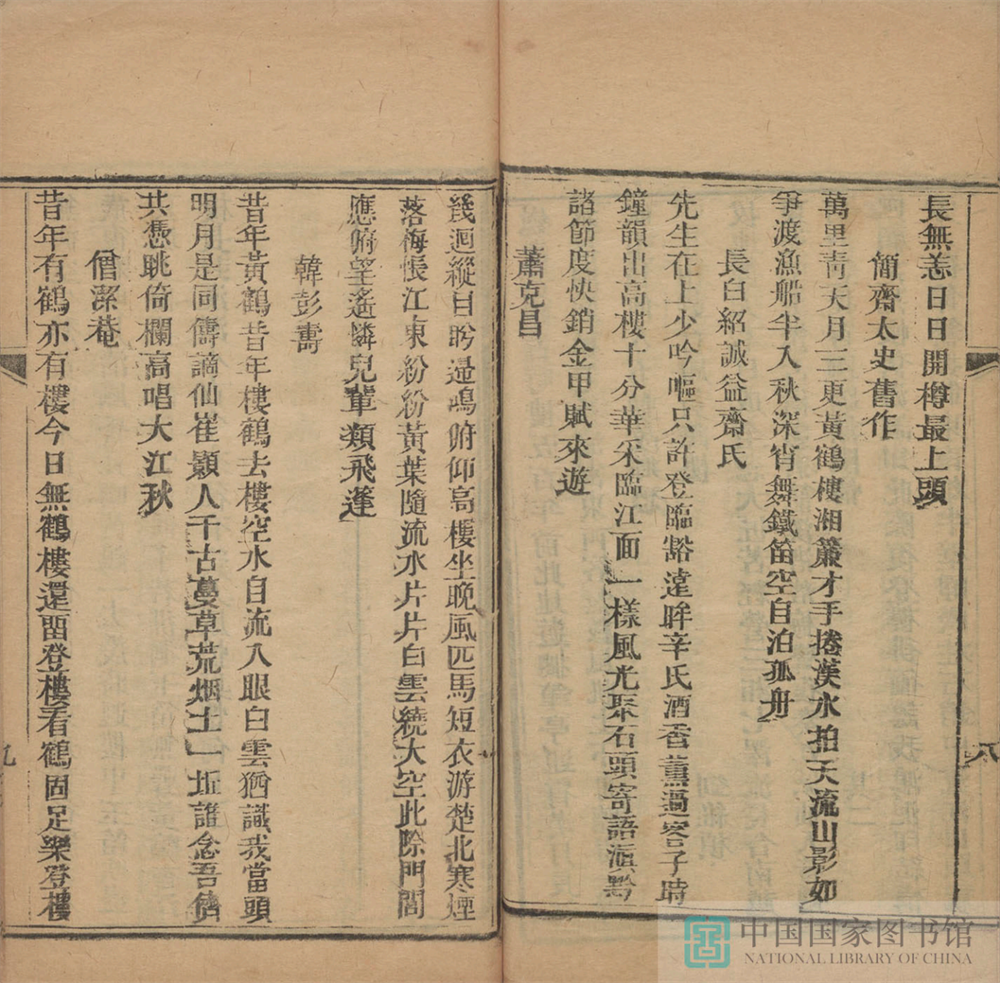 長無恙日日開樽最上頭
簡齋太史舊作
萬里青天月三更黃鶴樓湘簾才手捲漢水拍天流山影如
爭渡漁船半入秋深宵舞鐵笛空自泊孤舟
長白紹誠益齋氏
先生在上少吟嘔只許登臨豁遠眸辛氏酒香薰過客子時
鐘韻出高樓十分華采臨江面一樣風光聚石頭寄語滇黔
諸節度快銷金甲賦來遊
蕭克昌
八
幾迴縱目盻過鴻俯仰高樓坐晚風匹馬短衣游楚北寒煙
落梅悵江東紛紛黃葉隨流水片片白雲繞大空此際門閭
應俯望遙憐兒輩類飛蓬
韓彭壽
昔年黃鶴昔年樓鶴去樓空水自流入眼白雲猶識我當頭
明月是同儔謫仙崔顥人千古蔓草荒烟土一坵誰念吾儕
共憑眺倚欄高唱大江秋
僧潔菴
昔年有鶴亦有樓今日無鶴樓還留登樓看鶴固足樂登樓
九
中国国家图书馆
NATIONAL LIBRARY OF CHINA